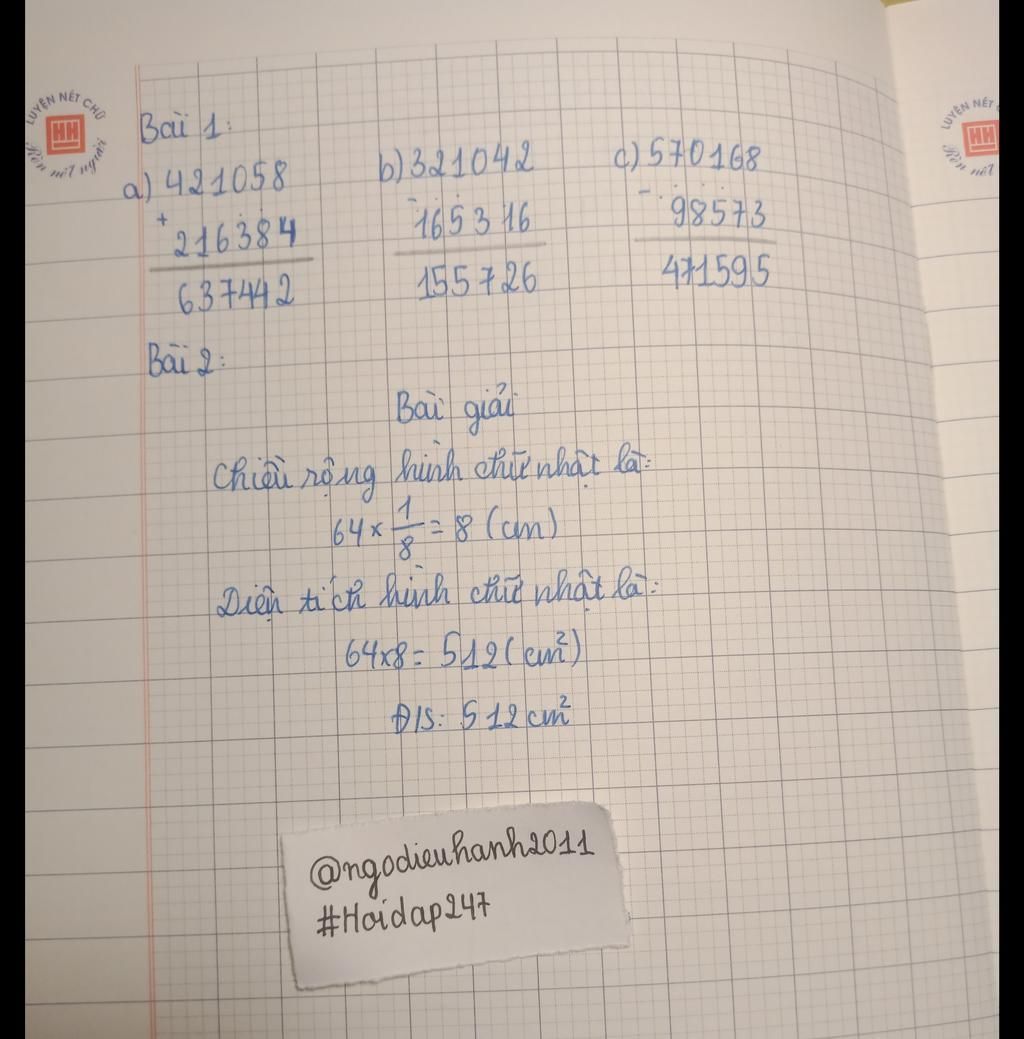 LUYỆN NÉT CHỮ
HH
Rèn nết người
LUYỆN NÉT
HH
Rèn nết
Bài 1:
a) 421058
+
216384
637442
b) 321042
-
165316
155726
c) 570168
-
98573
471595
Bài 2:
Bài giải
Chiều rộng hình chữ nhật là:
64 × 1/8 = 8 (cm)
Diện tích hình chữ nhật là:
64×8 = 512 (cm²)
Đ/S: 512 cm²
@ngodieuhanh2011
#Hoidap247